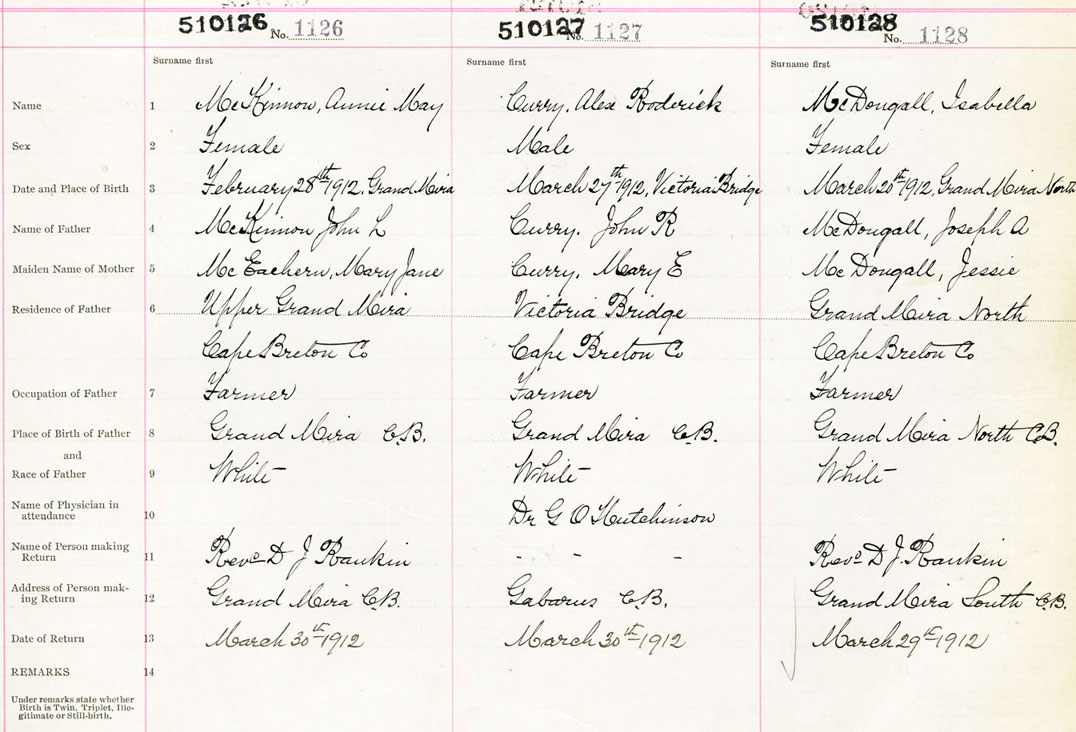 510126 No. 1126
510127 No. 1127
510128 No. 1128
Surname first
Surname first
Surname first
Name 1 McKinnon, Annie May Curry, Alex Roderick McDougall, Isabella
Sex 2 Female Male Female
Date and Place of Birth 3 February 28th 1912, Grand Mira March 27th 1912, Victoria Bridge March 20th 1912, Grand Mira North
Name of Father 4 McKinnon John L Curry. John R McDougall, Joseph A
Maiden Name of Mother 5 McEachern, Mary Jane Curry, Mary E McDougall, Jessie
Residence of Father 6 Upper Grand Mira Victoria Bridge Grand Mira North
Cape Breton Co Cape Breton Co Cape Breton Co
Occupation of Father 7 Farmer Farmer Farmer
Place of Birth of Father 8 Grand Mira C.B. Grand Mira C.B. Grand Mira North C.B.
and
Race of Father 9 White White White
Name of Physician in
attendance 10 Dr G O Hutchinson
Name of Person making
Return 11 Revd D J Rankin - - - Revd D J. Rankin
Address of Person mak-
ing Return 12 Grand Mira C.B. Gabarus C.B. Grand Mira South C.B.
Date of Return 13 March 30th 1912 March 30th 1912 March 29th 1912
REMARKS 14
Under remarks state whether
Birth is Twin, Triplet, Ille-
gitimate or Still-birth.